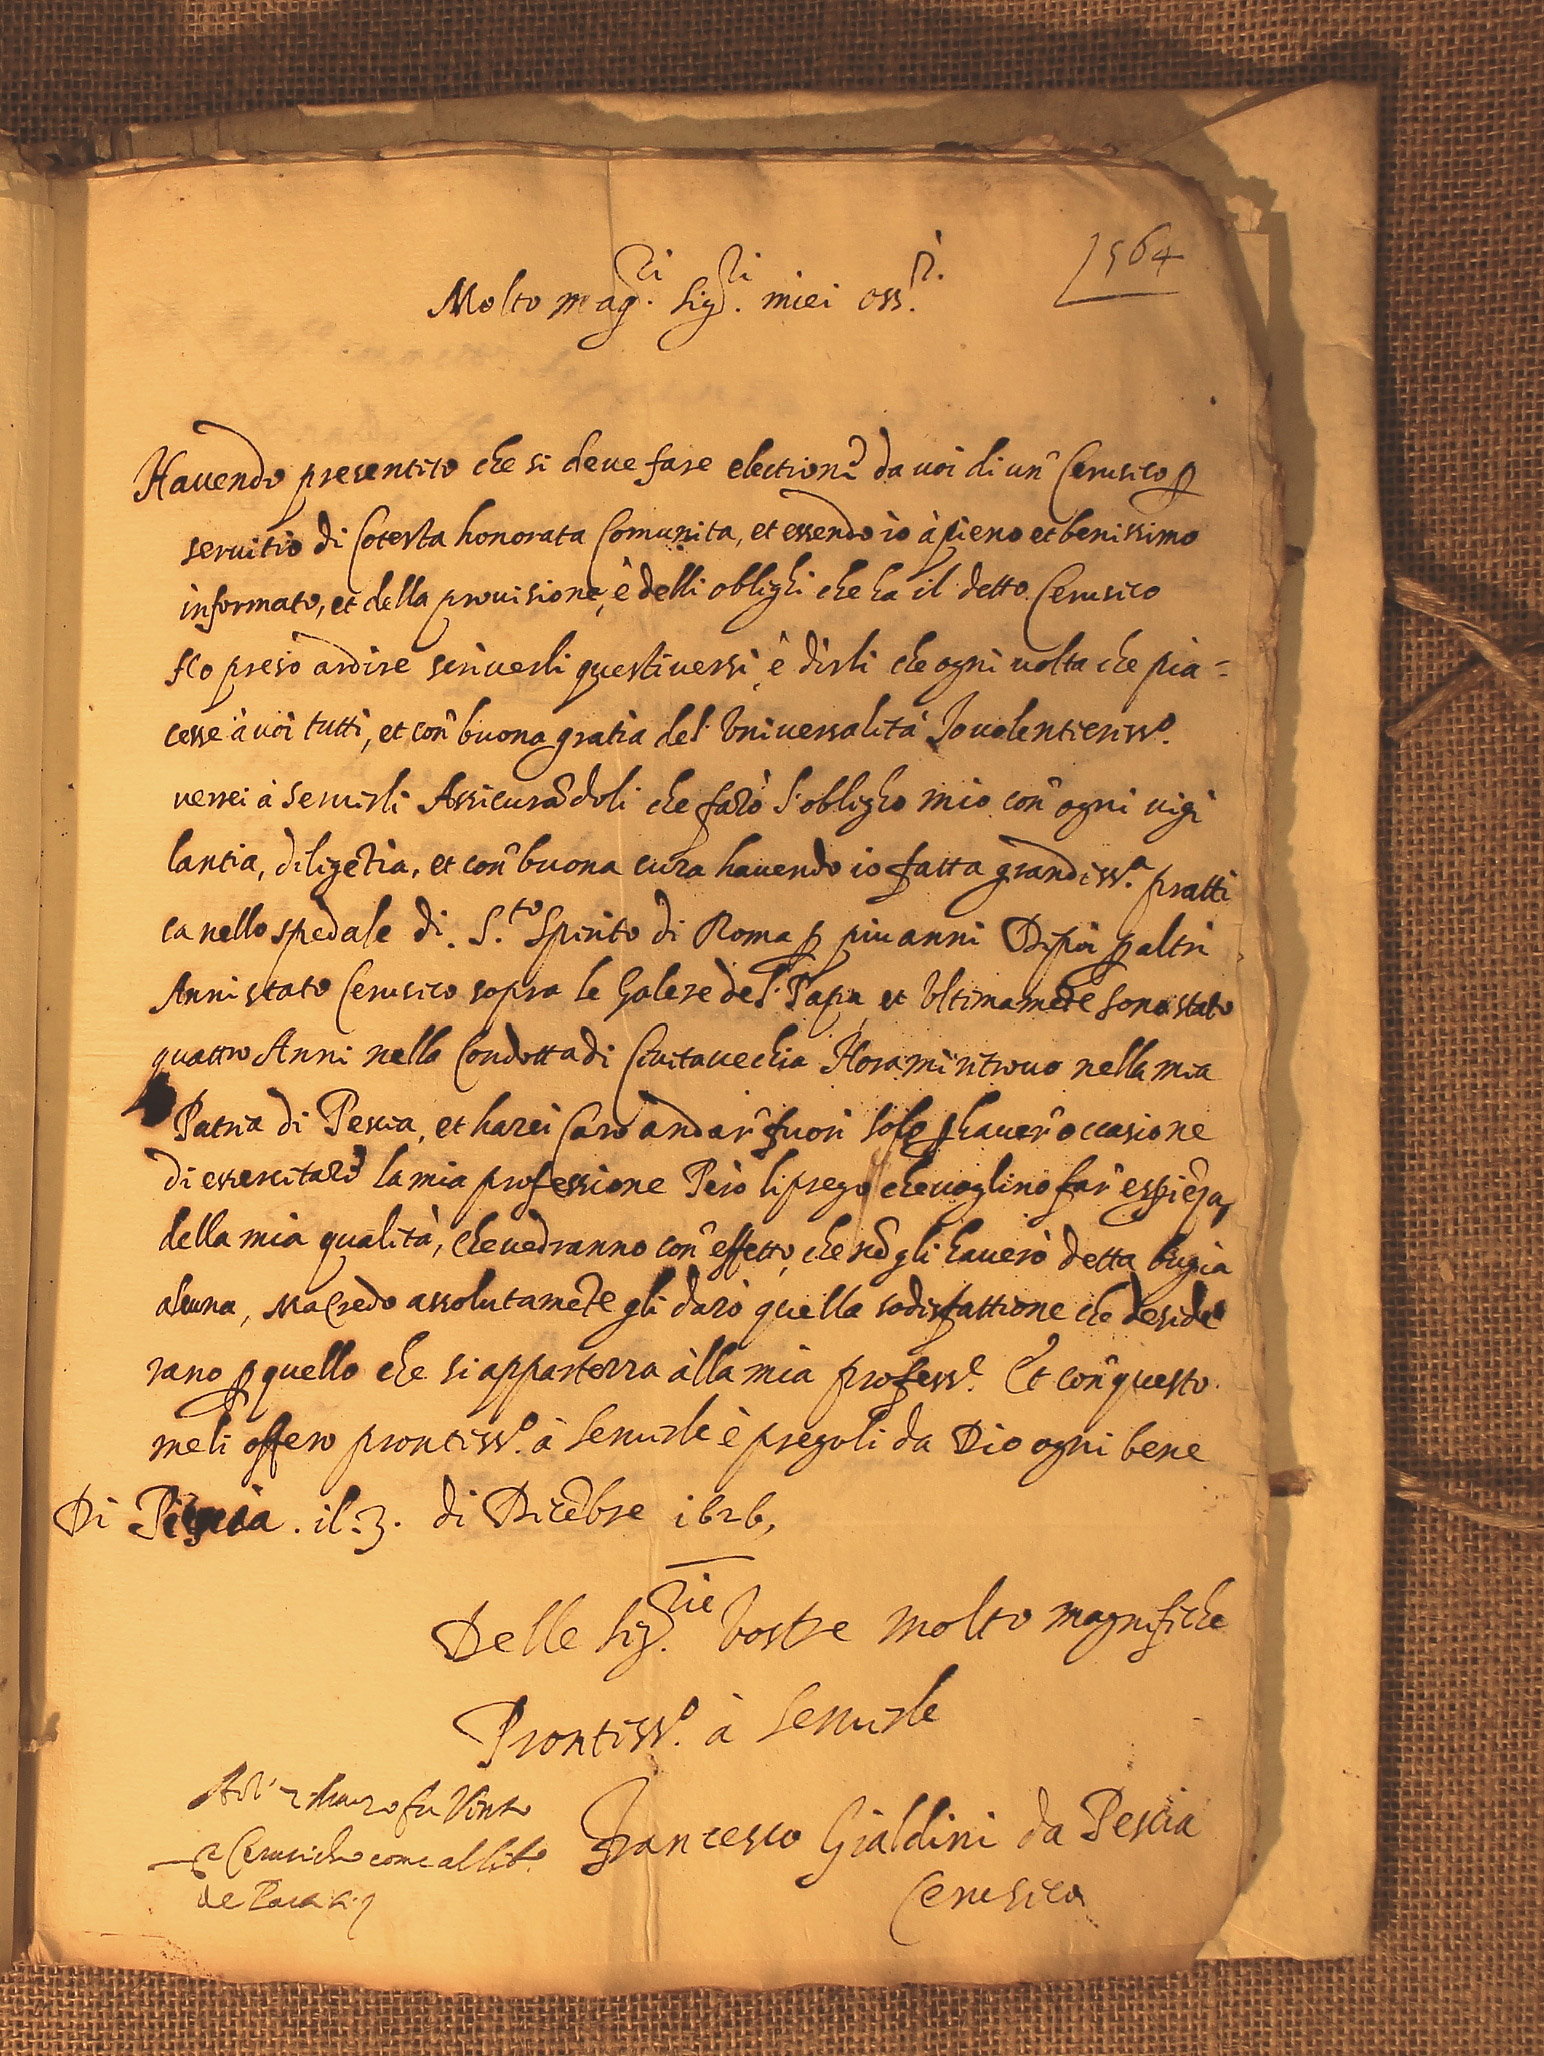 1564
Molto mag.ci Sig.ri miei oss.ri
Havendo presentito che si deve fare elettione da voi di un Cerusico p
servitio di Cotesta honorata Comunita, et essendo io à pieno et benissimo
informato, et della provisione, è delli oblighi che ha il detto Cerusico
Ho preso ardire scriverli questi versi, è dirli che ogni volta che pia=
cesse à voi tutti, et con buona gratia del' Universalità Io volentieriss.o
verrei à servirli Assicurādoli che farò l'obligho mio con ogni vigi
lantia, diligētia, et con buona cura havendo io fatta grandiss.a pratti
ca nello spedale di S.to Spirito di Roma p piu anni Dipoi p altri
Anni stato Cerusico sopra le Galere del' Papa et Ultimamēte sono stato
quattro Anni nella Condotta di Civitavechia Hora mi ritrovo nella mia
Patria di Pescia, et harei Caro andar fuori solo p haver occasione
di essercitare la mia professione Però li prego che voglino far
della mia qualità, che vedranno con effetto, che nō gli haverò detta bugia
alcuna, Ma Credo assolutamēte gli darò quella sodisfattione che deside
rano p quello che si apparterra àlla mia profess.e Et con questo
meli offero prontiss.o à servirle è pregoli da Dio ogni bene
Di Pescia . il .3. di Dicēbre 1626,
Delle Sig.rie Vostre molto magnifiche
Prontiss.o à Servirle
Francesco Gialdini da Pescia
Cerusico
fu Vinto
Cerusicho come al lib.o
de